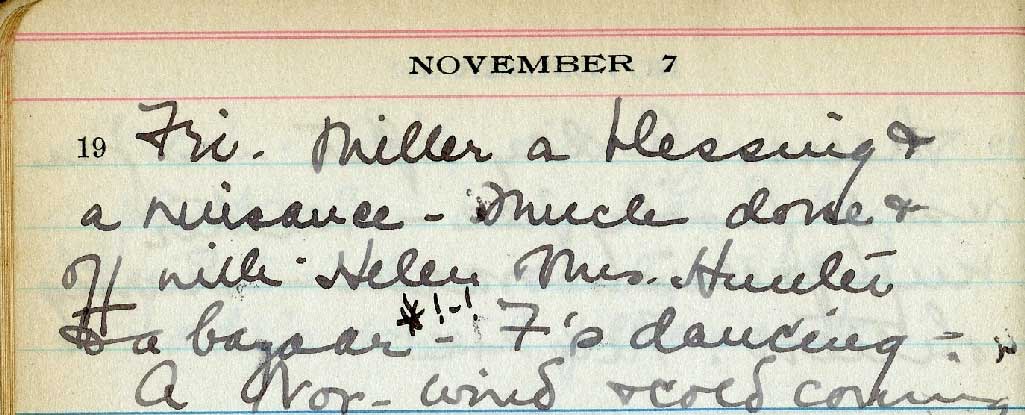 NOVEMBER 7
19 Fri. Miller a blessing &
a nuisance - much done &
off with Helen Mrs. Hunter
to a bazaar *!-! - F's dancing -
A Nor- wind & cold coming